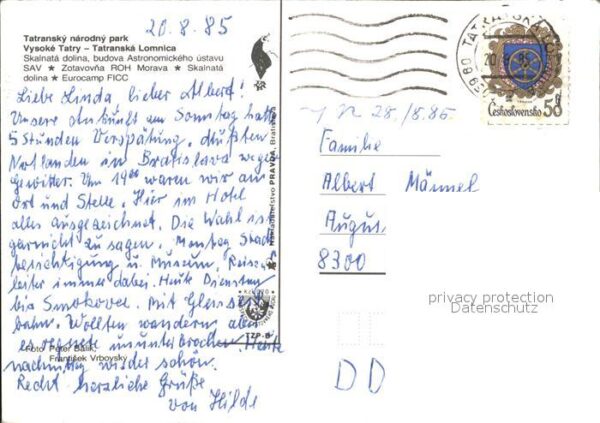 20.8.85
Tatranský národný park
Vysoké Tatry – Tatranská Lomnica
Skalnatá dolina, budova Astronomického ústavu
SAV ★ Zotavovňa ROH Morava ★ Skalnatá
dolina ★ Eurocamp FICC
Liebe Linda lieber Albert!
Unsere Ankunft am Sonntag hatte
5 Stunden Verspätung, mußten
Notlanden in Bratislava wegen
Gewitter. Um 19⁰⁰ waren wir an
Ort und Stelle. Hier im Hotel
alles ausgezeichnet. Die Wahl ist
garnicht zu sagen. Montag Stadt
besichtigung u. Museum, Reise
leiter immer dabei. Heute Dienstag
bis Smokovec. Mit
bahn. Wollten wandern aber
es regnete ununterbrochen. Heute
nachmittag wieder schön.
Recht herzliche Grüße
von Hilde
Foto Peter
František Vrbovský
Nakladateľstvo PRAVDA, Bratislava
TZP-B
TATRANSKÁ
Československo 50
28./8.85
Familie
Albert Männel
Augus
8300
DD
privacy protection
Datenschutz